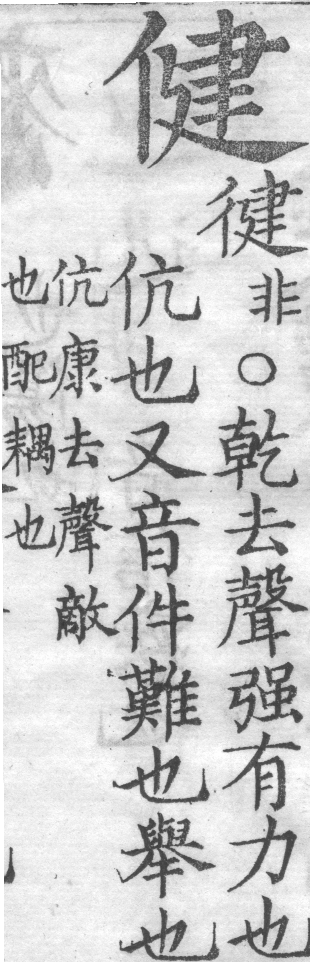 健
徤非○乾去聲强有力也
伉也又音件難也舉也
伉康去聲敵
也配耦也